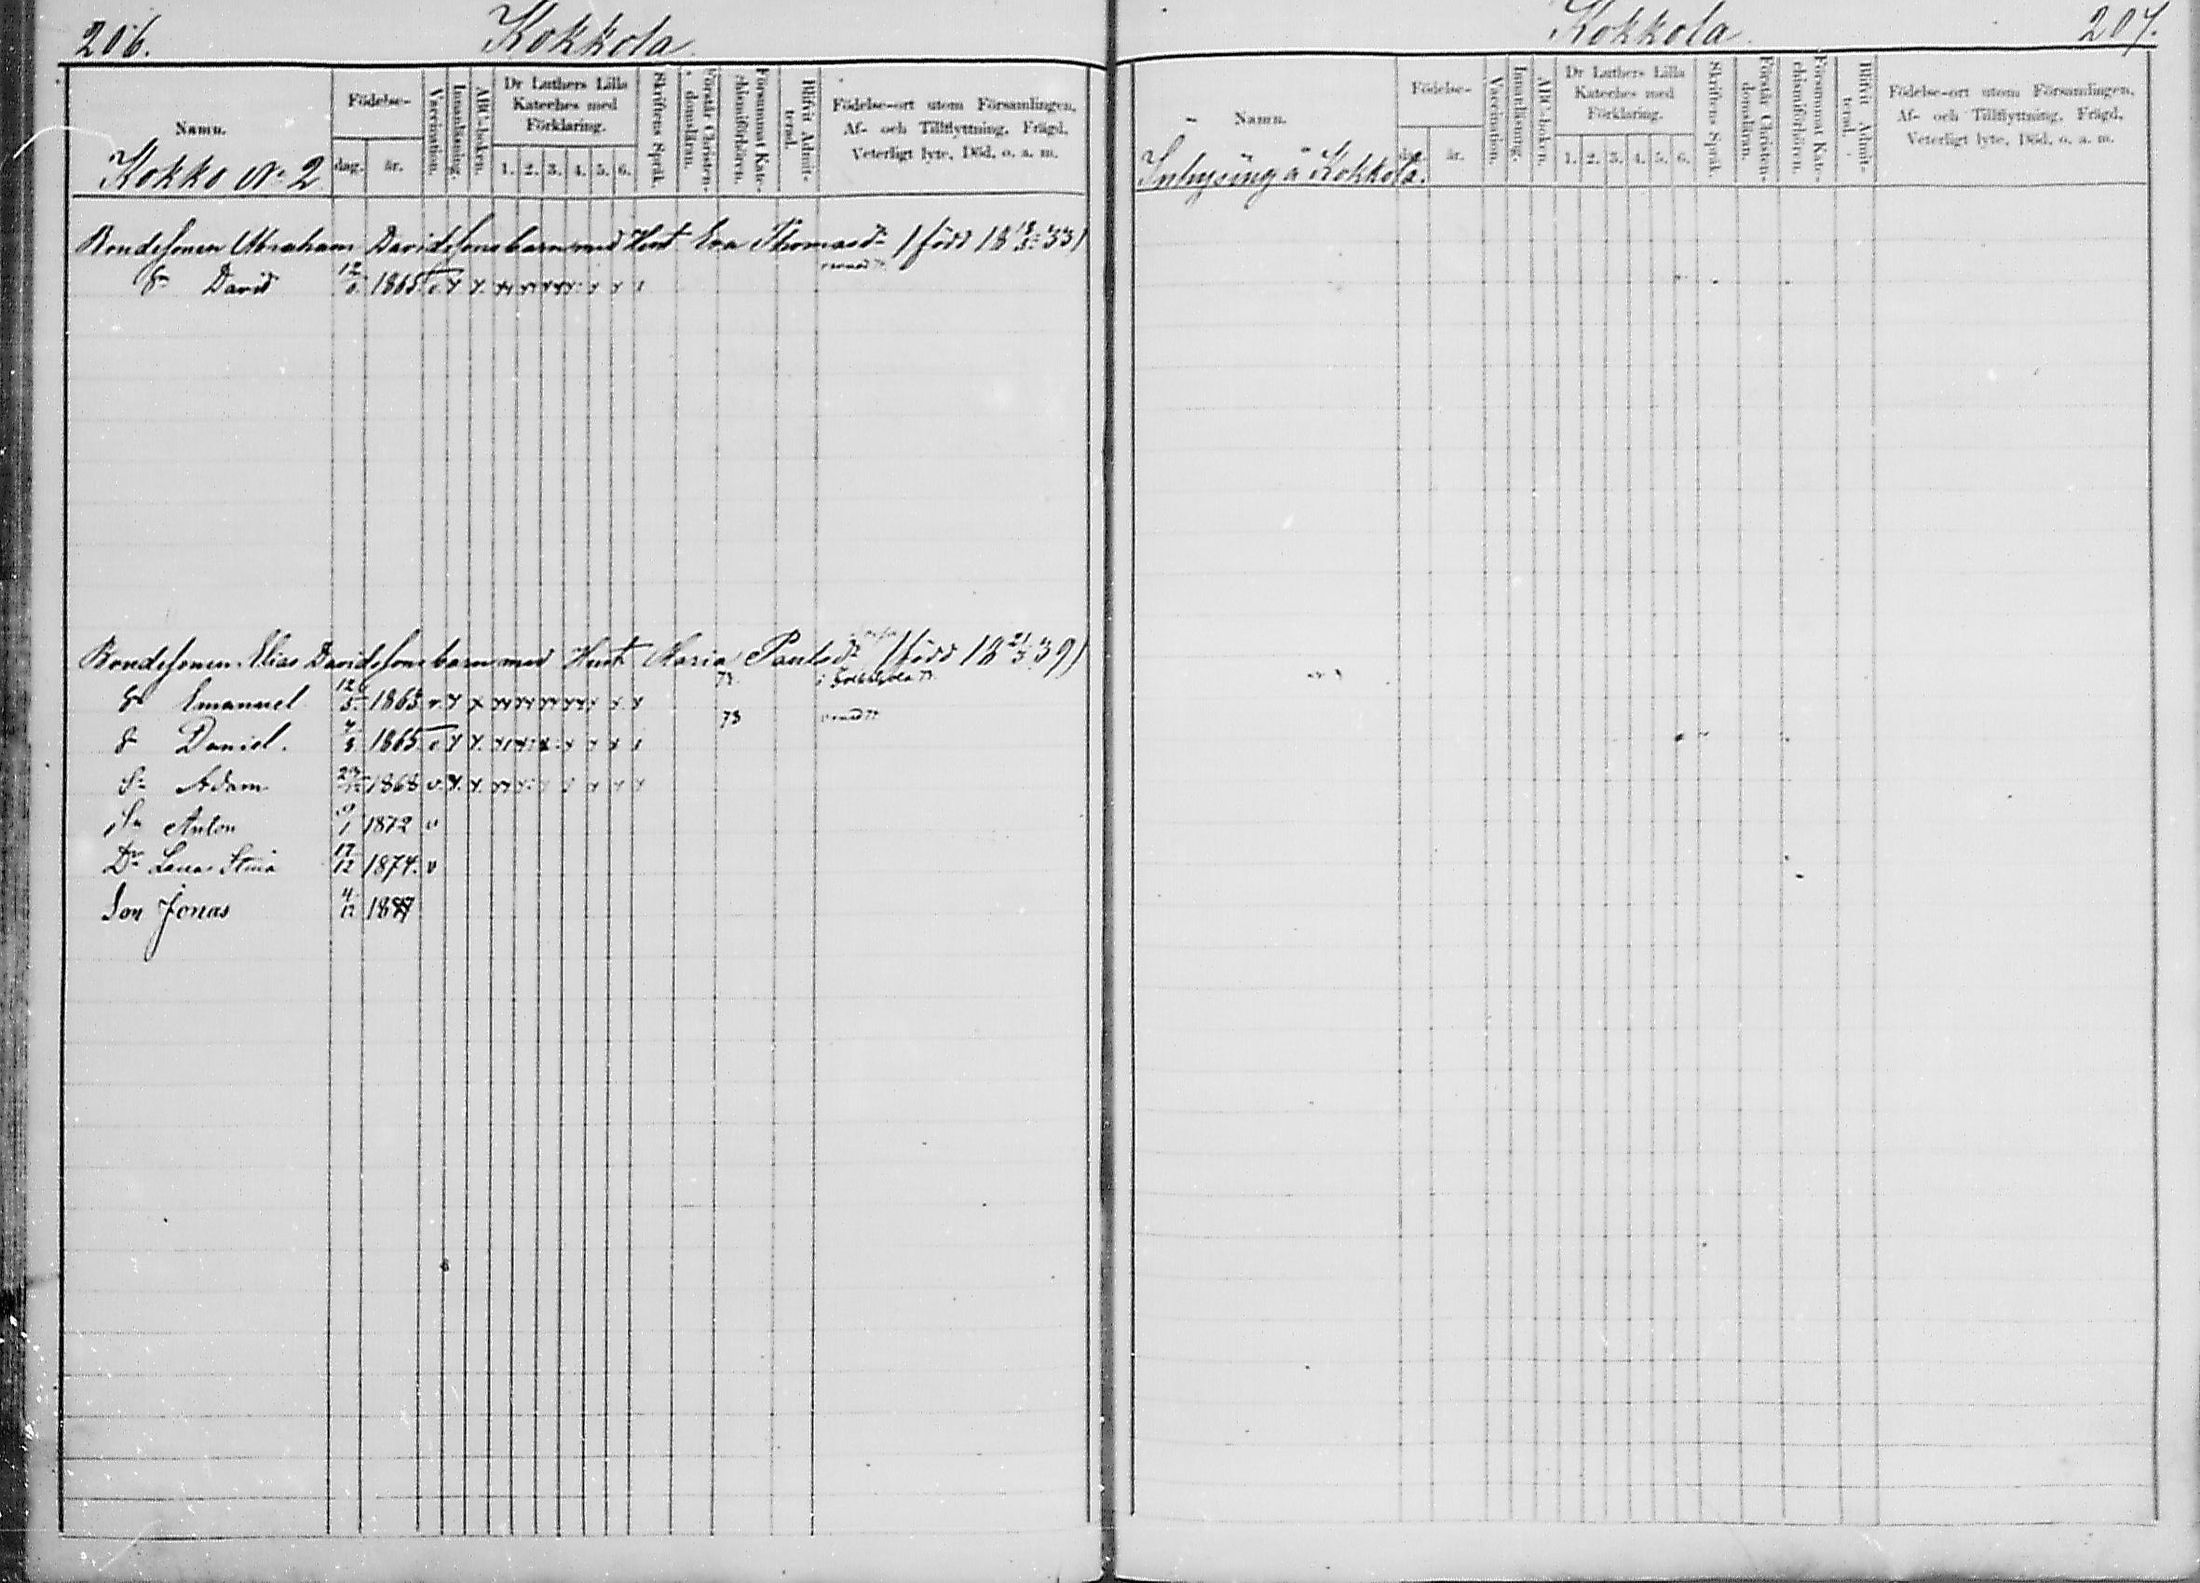 206.
Kokkola
Namn.
Födelse-
dag.
år.
Vaccination.
Innanläsning.
ABC-boken.
Dr Luthers Lilla
Kateches med
Förklaring.
1. 2. 3. 4. 5. 6.
Skriftens Språk.
Förstår Christen-
domsläran.
Försummat Kate-
chismiförhören.
Blifvit Admit-
terad.
Födelse-ort utom Församlingen,
Af- och Tillflyttning, Frägd,
Veterligt lyte, Död, o. a. m.
Kokko No 2
Bondesonen Abraham Davidssons barn med Hust. Eva Thomasdr (född 18 18/3 33)
Sn David 12 1865 v
Bondesonen Elias Davidssons barn med Hust. Maria Paulsdr (född 18 21/3 39)
73.
Sn Emanuel 12/5 1863 v
73
Sn Daniel. 1865 v
Sn Adam 29/12 1868 v
Sn Anton 9/1 1872 v
Dr Lena Stina 17/12 1874. v
Son Jonas 4/12 1877
Kokkola
207.
Namn.
Födelse-
dag.
år.
Vaccination.
Innanläsning.
ABC-boken.
Dr Luthers Lilla
Kateches med
Förklaring.
1. 2. 3. 4. 5. 6.
Skriftens Språk.
Förstår Christen-
domsläran.
Försummat Kate-
chismiförhören.
Blifvit Admit-
terad.
Födelse-ort utom Församlingen,
Af- och Tillflyttning, Frägd,
Veterligt lyte, Död, o. a. m.
Inhysing å Kokkola.